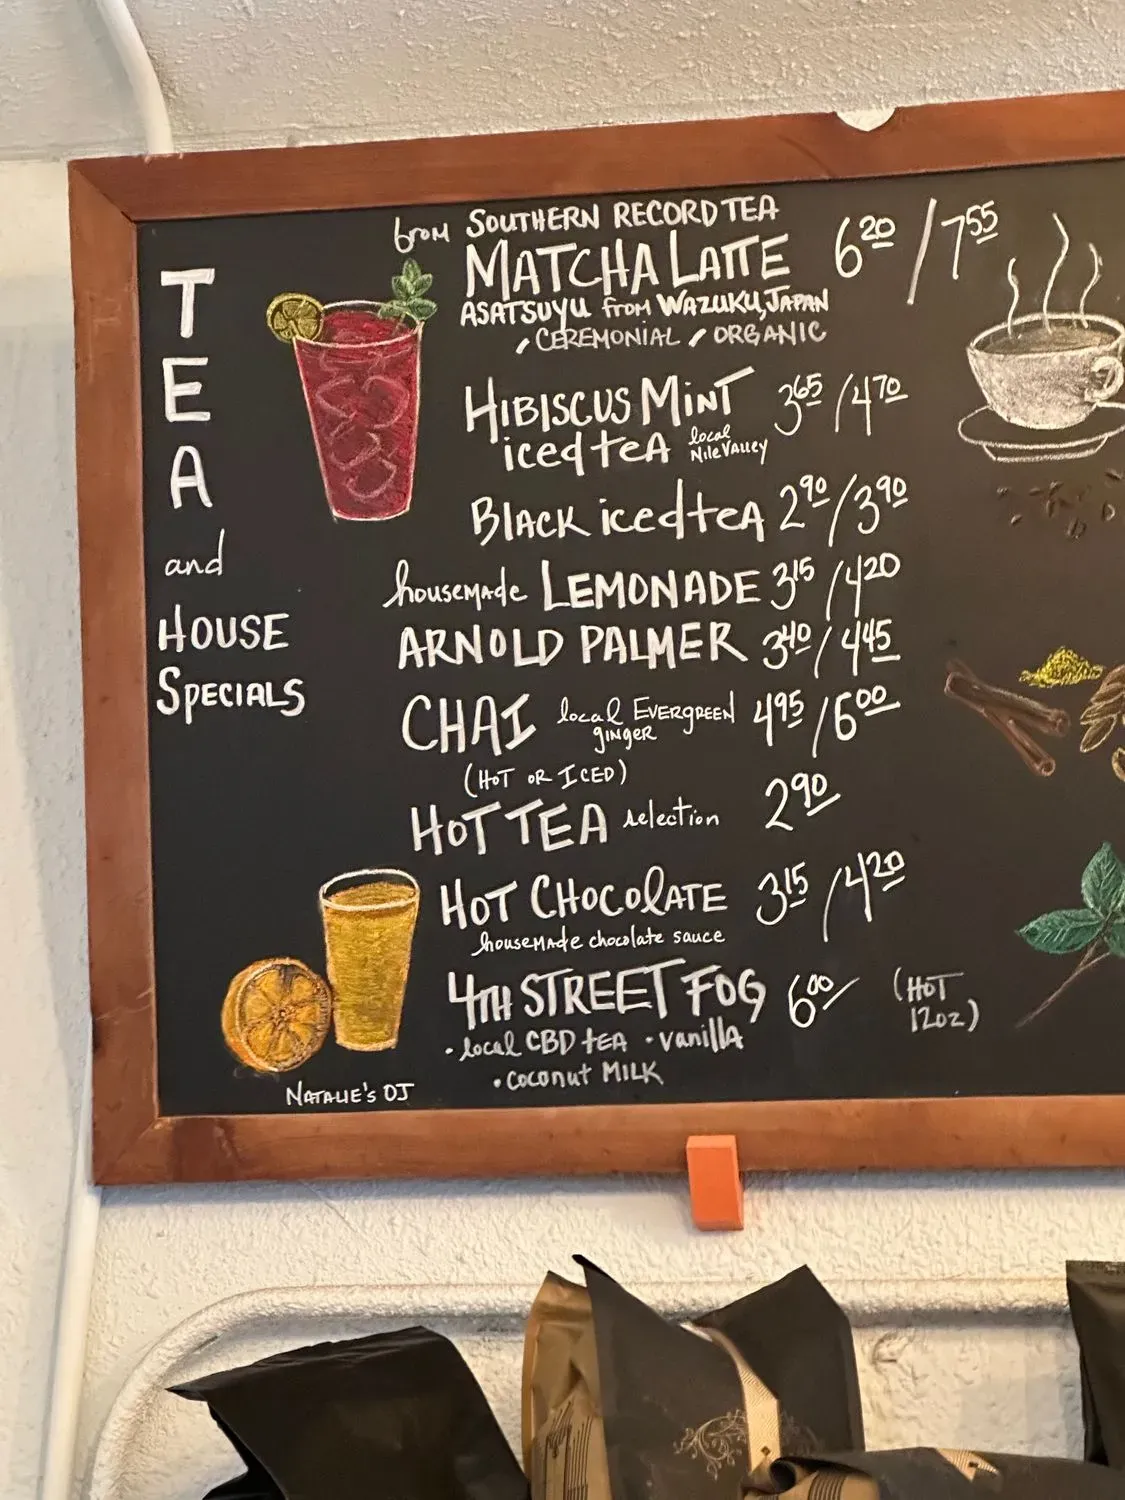 TEA
and
HOUSE
SPECIALS
from SOUTHERN RECORD TEA
MATCHA LATTE 6 20 / 7 55
ASATSUYU from WAZUKU, JAPAN
/ CEREMONIAL / ORGANIC
HIBISCUS MINT 3 65 / 4 70
iced teA local
Nile VALLEY
BLACK iced teA 2 90 / 3 90
housemade LEMONADE 3 15 / 4 20
ARNOLD PALMER 3 40 / 4 45
CHAI local EVERGREEN 4 95 / 6 00
GINGER
(HOT OR ICED)
HOT TEA selection 2 90
HOT CHOCOLATE 3 15 / 4 20
housemade chocolate sauce
4TH STREET FOG 6 00 (HOT
12oz)
• local CBD tEA • vanilla
• coconut MILK
NATALIE'S OJ